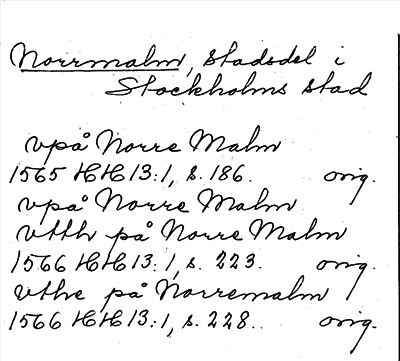 Norrmalm, stadsdel i
Stockholms stad
vpå Norre Malm
1565 HH 13:1, s. 186. orig.
vpå Norre Malm
vtth på Norre Malm
1566 HH 13:1, s. 223. orig.
vthe på Norremalm
1566 HH 13:1, s. 228. orig.